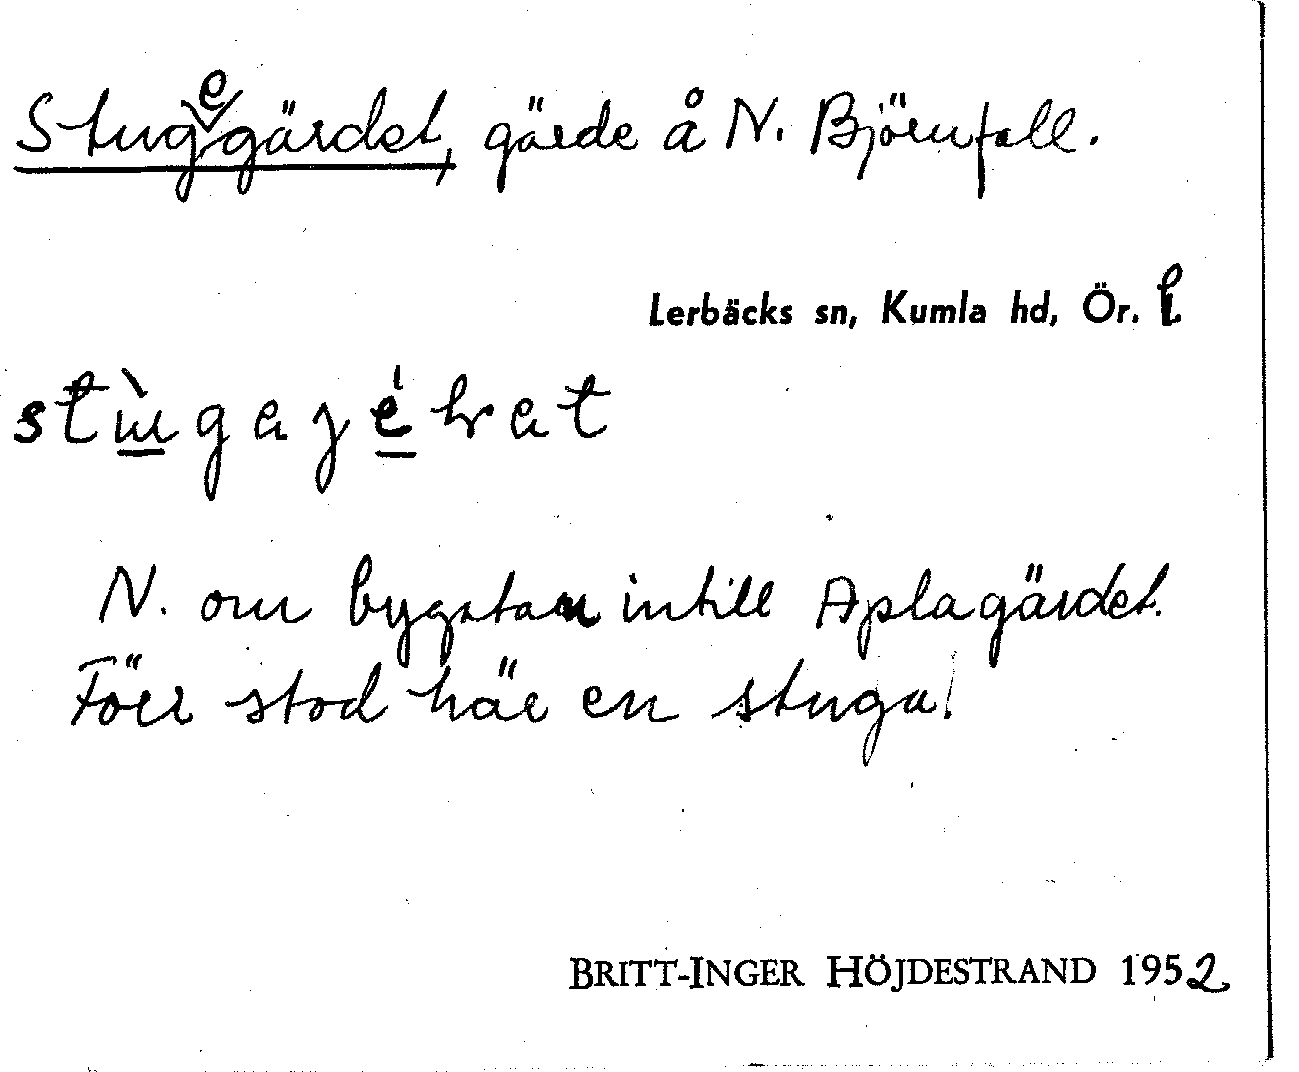 Stugegärdet, gärde å N. Björnfall.
Lerbäcks sn, Kumla hd, Ör. l
N. om bygatan intill Aplagärdet.
Förr stod här en stuga.
BRITT-INGER HÖJDESTRAND 1952